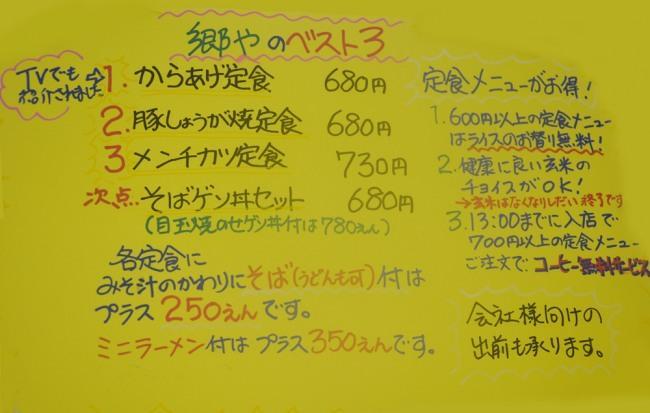 郷やのベスト3
TVでも
紹介されました
1.からあげ定食 680円
2.豚しょうが焼定食 680円
3 メンチカツ定食 730円
次点…そばゲン丼セット 680円
(目玉焼のせゲン丼付は780えん)
各定食に
みそ汁のかわりにそば(うどんも可)付は
プラス250えんです。
ミニラーメン付はプラス350えんです。
定食メニューがお得!
1.600円以上の定食メニュー
はライスのお替り無料!
2.健康に良い玄米の
チョイスがOK!
→玄米はなくなりしだい終了です
3.13:00までに入店で
700円以上の定食メニュー
ご注文でコーヒー無料サービス
会社様向けの
出前も承ります。